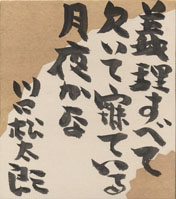 義理すべて
欠いて寐ている
月夜かな
川口松太郎